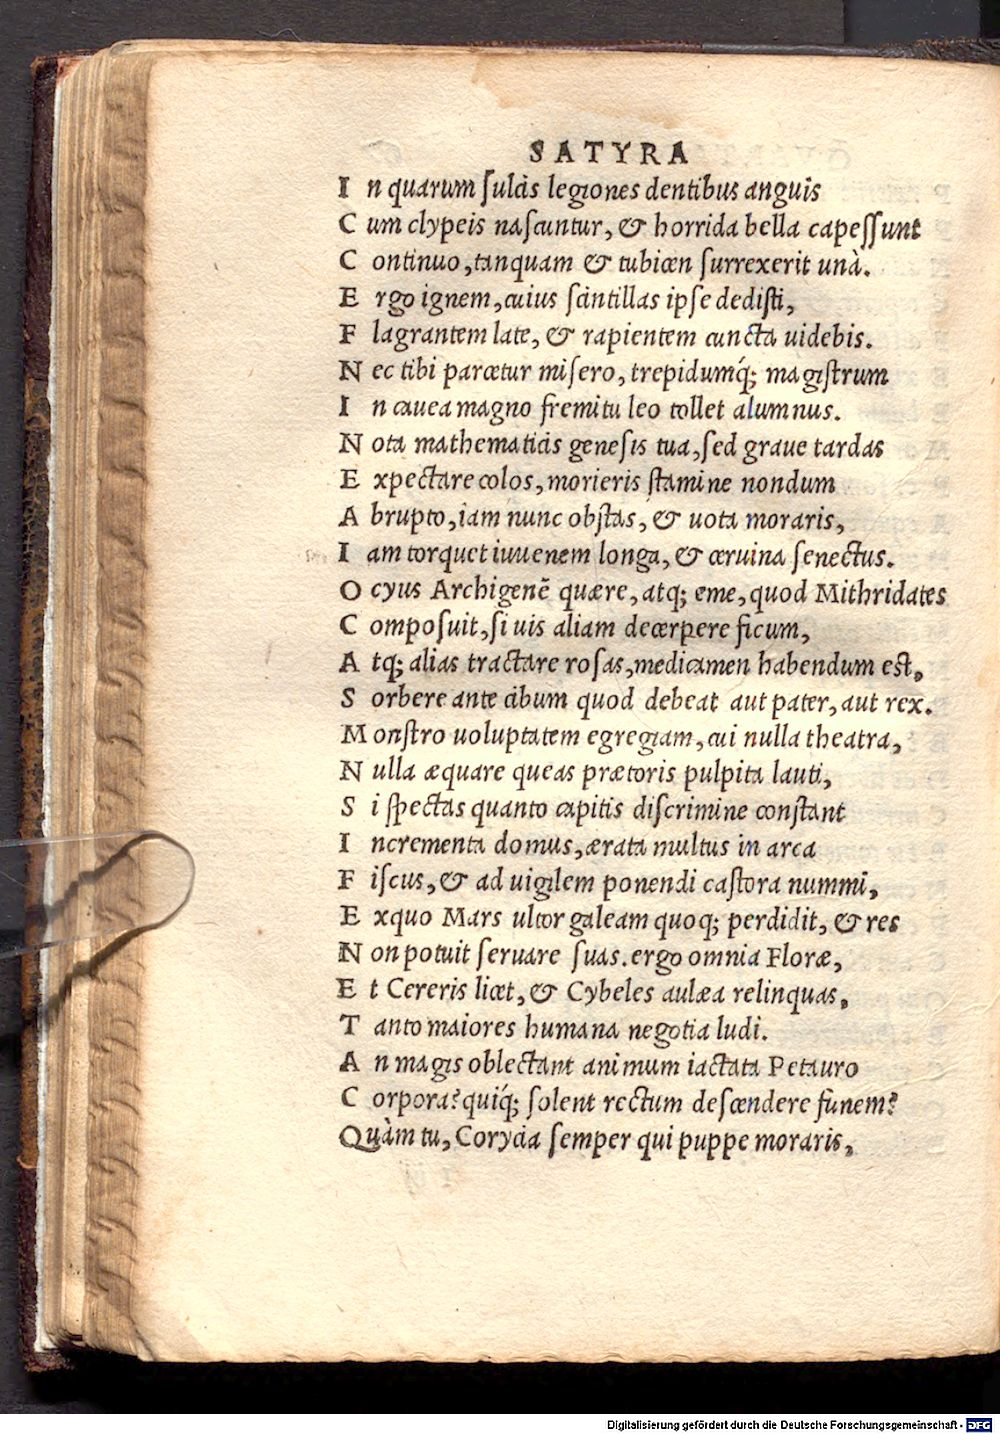 SATYRA
In quarum sulcis legiones dentibus anguis
Cum clypeis nascuntur, & horrida bella capessunt
Continuo, tanquam & tubicen surrexerit unà.
Ergo ignem, cuius scintillas ipse dedisti,
Flagrantem late, & rapientem cuncta uidebis.
Nec tibi parcetur misero, trepidumq́; magistrum
In cauea magno fremitu leo tollet alumnus.
Nota mathematicis genesis tua, sed graue tardas
Expectare colos, morieris stamine nondum
Abrupto, iam nunc obstas, & uota moraris,
Iam torquet iuuenem longa, & ceruina senectus.
Ocyus Archigenē quære, atq; eme, quod Mithridates
Composuit, si uis aliam decerpere ficum,
Atq; alias tractare rosas, medicamen habendum est,
Sorbere ante cibum quod debeat aut pater, aut rex.
Monstro uoluptatem egregiam, cui nulla theatra,
Nulla æquare queas prætoris pulpita lauti,
Si spectas quanto capitis discrimine constant
Incrementa domus, ærata multus in arca
Fiscus, & ad uigilem ponendi castora nummi,
Exquo Mars ultor galeam quoq; perdidit, & res
Non potuit seruare suas. ergo omnia Floræ,
Et Cereris licet, & Cybeles aulæa relinquas,
Tanto maiores humana negotia ludi.
An magis oblectant animum iactata Petauro
Corpora? quiq́; solent rectum descendere funem?
Quàm tu, Corycia semper qui puppe moraris,
Digitalisierung gefördert durch die Deutsche Forschungsgemeinschaft - DFG